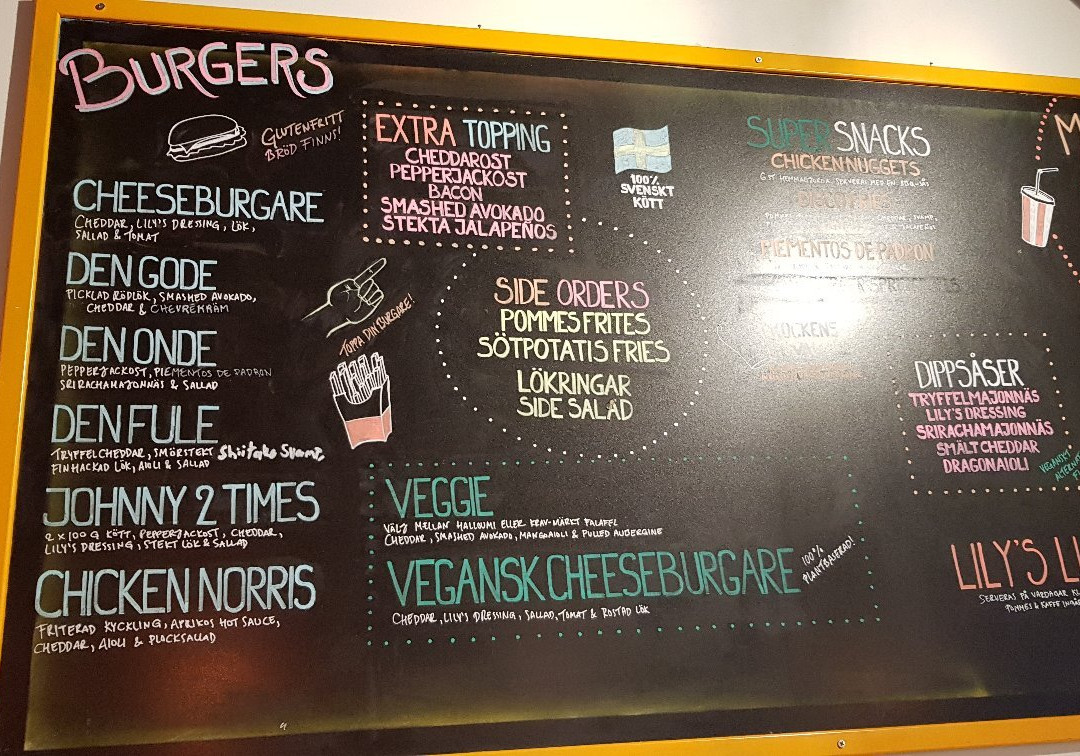 BURGERS
GLUTENFRITT
BRÖD FINNS!
CHEESEBURGARE
CHEDDAR, LILY'S DRESSING, LÖK,
SALLAD & TOMAT
DEN GODE
PICKLAD RÖDLÖK, SMASHED AVOKADO,
CHEDDAR & CHEVREKRÄM
DEN ONDE
PEPPERJACKOST, PIEMENTOS DE PADRON
SRIRACHAMAJONNÄS & SALLAD
DEN FULE
TRYFFELCHEDDAR, SMÖRSTEKT Shiitake Svamp,
FINHACKAD LÖK, AIOLI & SALLAD
JOHNNY 2 TIMES
2 X 100 G KÖTT, PEPPERJACKOST, CHEDDAR,
LILY'S DRESSING, STEKT LÖK & SALLAD
CHICKEN NORRIS
FRITERAD KYCKLING, AFRIKOS HOT SAUCE,
CHEDDAR, AIOLI & PLOCKSALLAD
EXTRA TOPPING
CHEDDAROST
PEPPERJACKOST
BACON
SMASHED AVOKADO
STEKTA JALAPEÑOS
TOPPA DIN BURGARE!
100%
SVENSKT
KÖTT
SIDE ORDERS
POMMES FRITES
SÖTPOTATIS FRIES
LÖKRINGAR
SIDE SALAD
VEGGIE
VÄLJ MELLAN HALLOUMI ELLER KRAV-MÄRKT FALAFEL
CHEDDAR, SMASHED AVOKADO, MANGOAIOLI & PULLED AUBERGINE
VEGANSK CHEESEBURGARE
100%
PLANTBASERAD!
CHEDDAR, LILY'S DRESSING, SALLAD, TOMAT & ROSTAD LÖK
SUPER SNACKS
CHICKEN NUGGETS
6 ST HEMMAGJORDA, SERVERAS MED EN
PIEMENTOS DE PADRON
DIPPSÅSER
TRYFFELMAJONNÄS
LILY'S DRESSING
SRIRACHAMAJONNÄS
SMÄLT CHEDDAR
DRAGONAIOLI
VEGANSKT
M
LILY'S L
SERVERAS PÅ VARDAGAR
POMMES & KAFFE